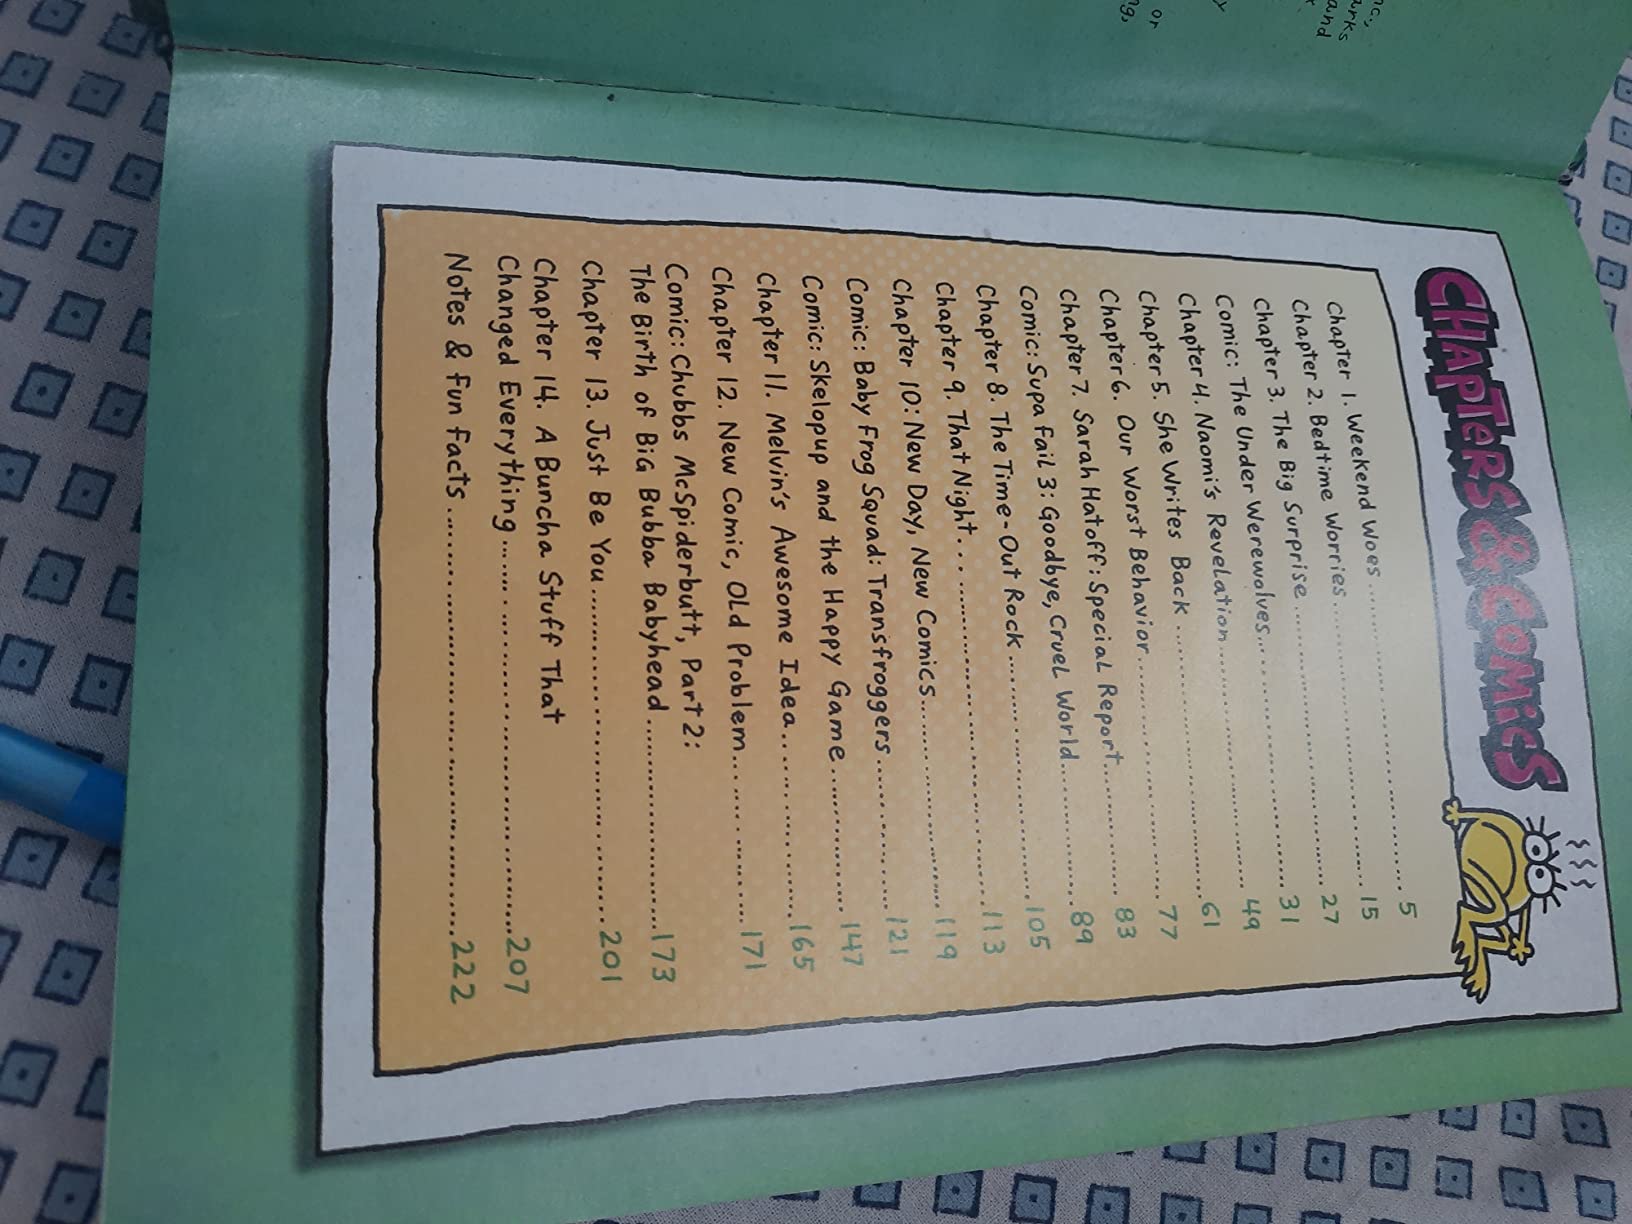 nc,
arks
and
or
ng,
CHAPTERS & COMICS
Chapter 1. Weekend Woes.......................................5
Chapter 2. Bedtime Worries....................................15
Chapter 3. The Big Surprise...................................27
Comic: The Under Werewolves...................................31
Chapter 4. Naomi's Revelation.................................49
Chapter 5. She Writes Back....................................61
Chapter 6. Our Worst Behavior.................................77
Chapter 7. Sarah Hatoff: Special Report.......................83
Comic: Supa Fail 3: Goodbye, Cruel World......................89
Chapter 8. The Time-Out Rock..................................105
Chapter 9. That Night.........................................113
Chapter 10: New Day, New Comics...............................119
Comic: Baby Frog Squad: Transfroggers.........................121
Comic: Skelopup and the Happy Game............................147
Chapter 11. Melvin's Awesome Idea.............................165
Chapter 12. New Comic, Old Problem............................171
Comic: Chubbs McSpiderbutt, Part 2:
The Birth of Big Bubba Babyhead...............................173
Chapter 13. Just Be You.......................................201
Chapter 14. A Buncha Stuff That
Changed Everything............................................207
Notes & Fun Facts.............................................222